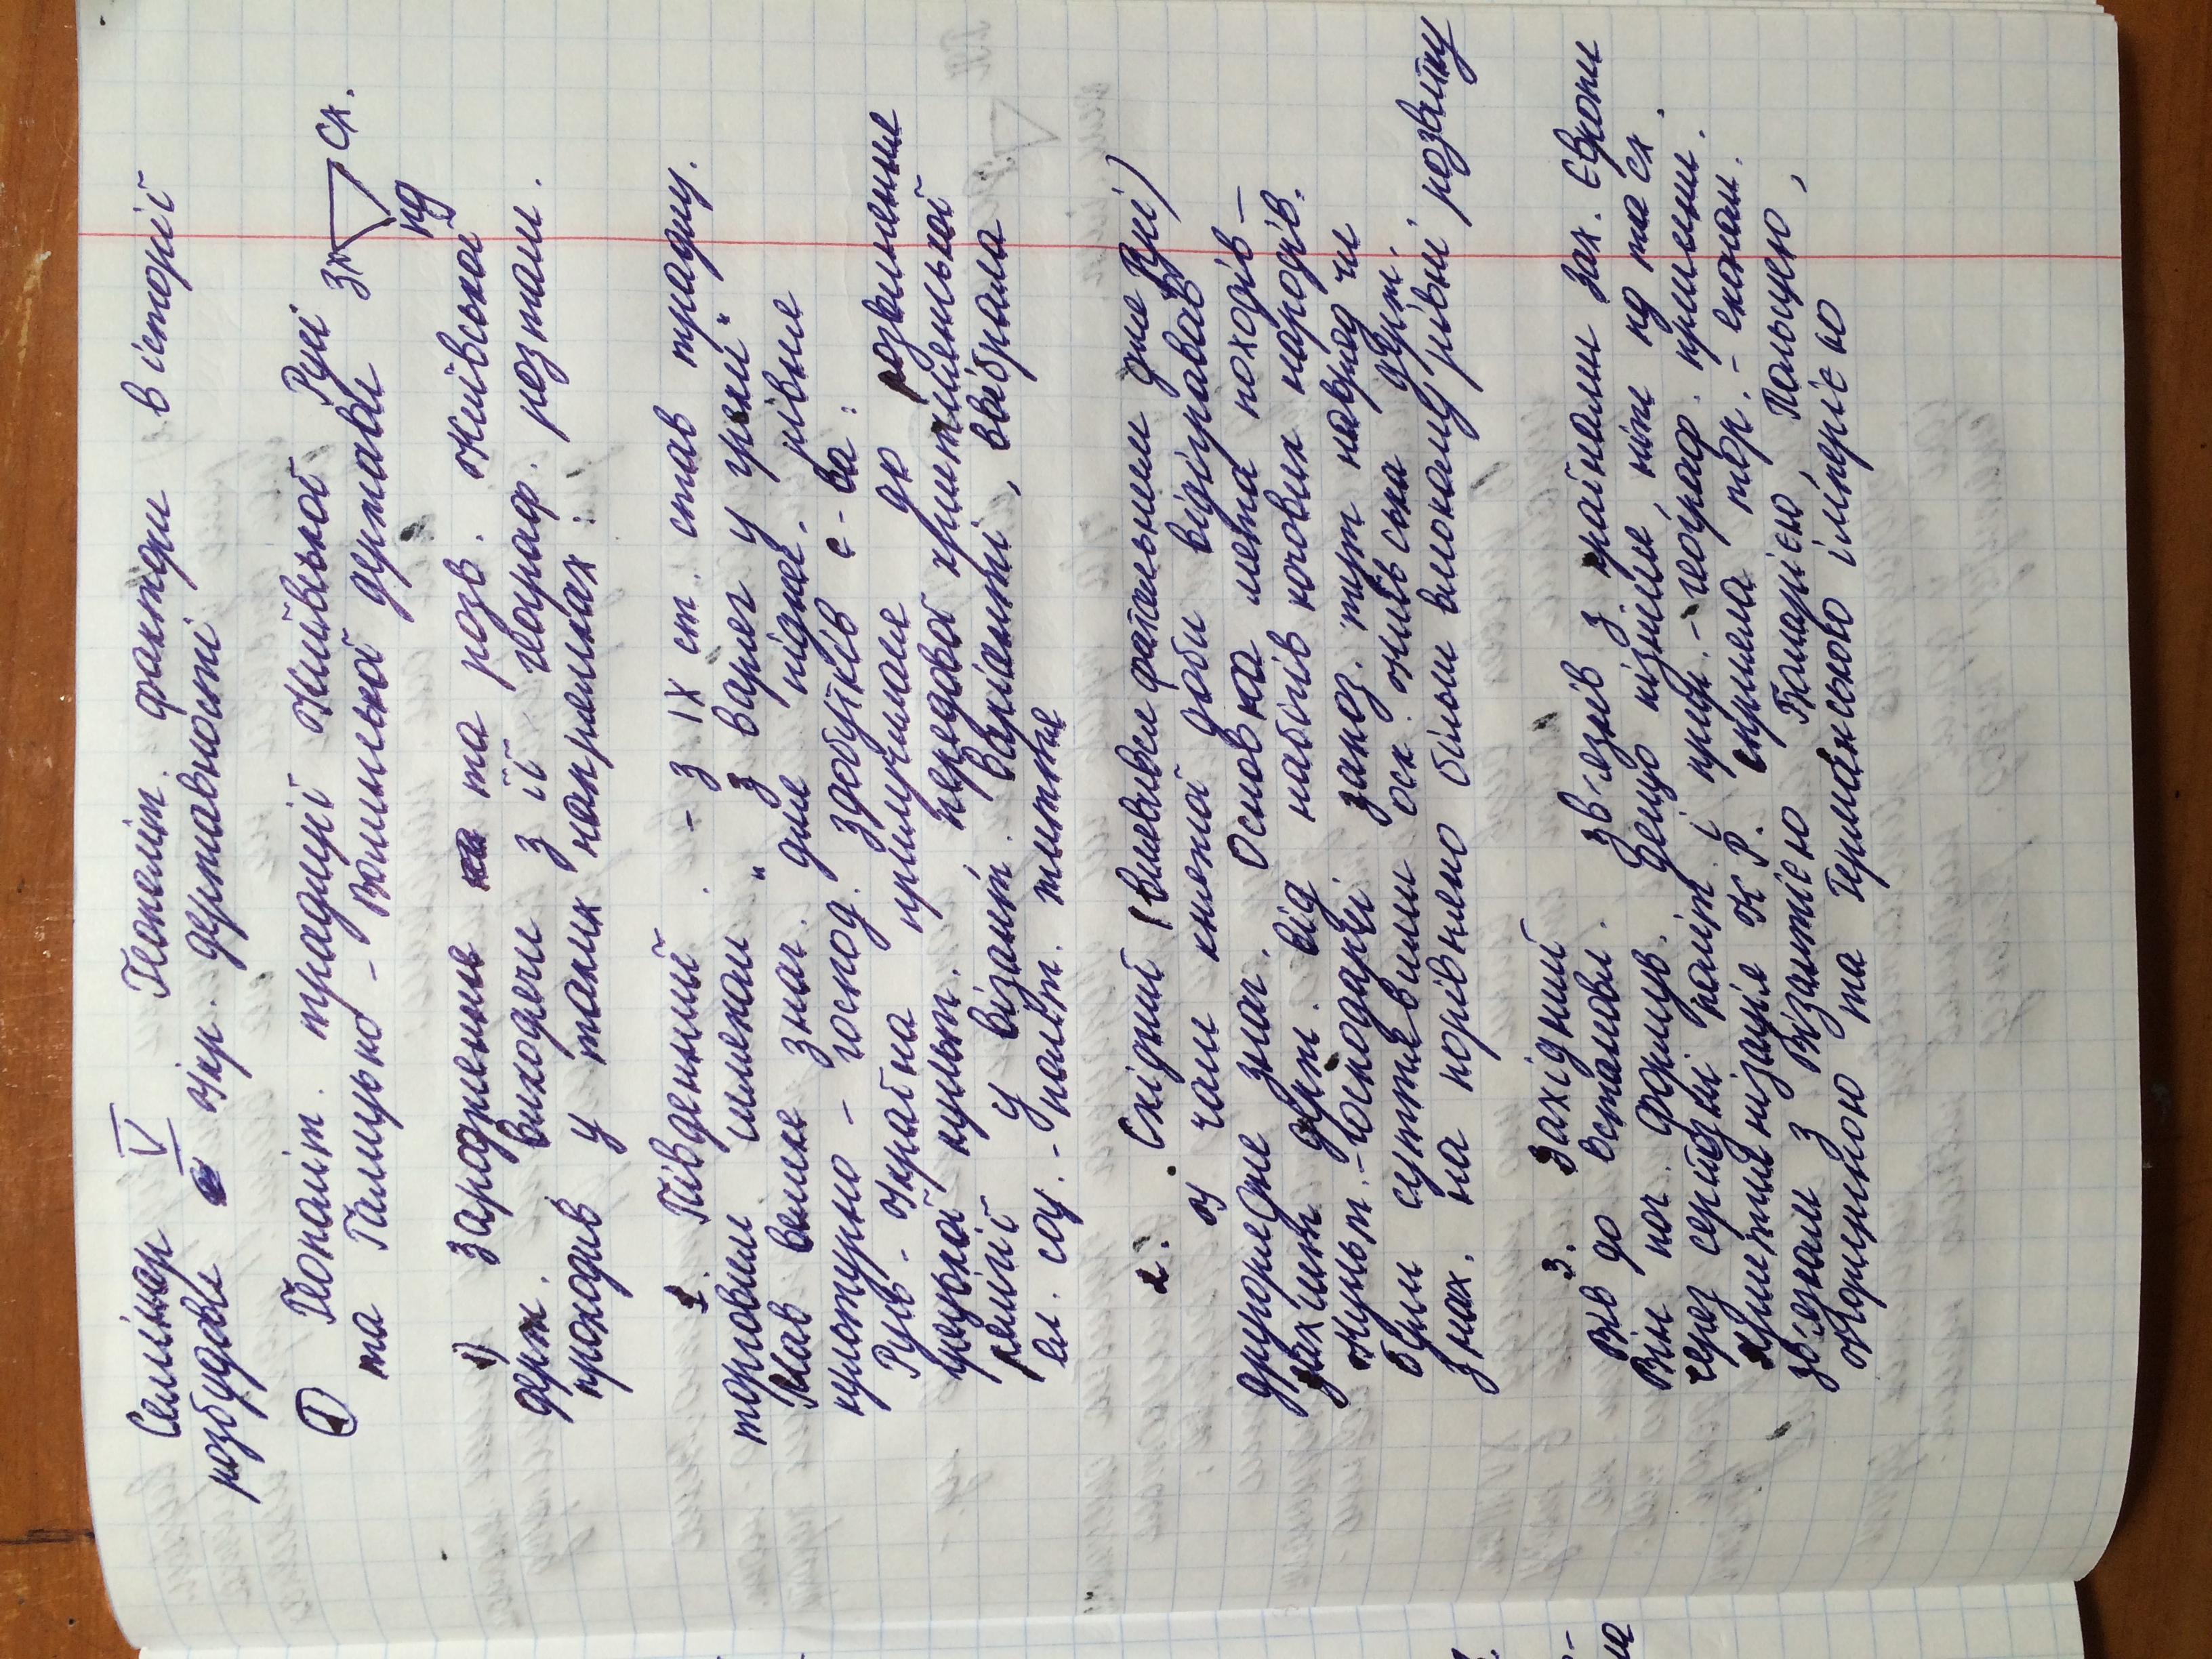 Семінар V Геополіт. фактори в історії
розбудови Укр. державності
1) Геополіт. традиції Київської Русі
та Галицько - Волинської держави
Зх Сх.
пд
1) Зародження та розв. Київської
держ., виходячи з її географ. розташ.
проходив у таких напрямках:
1. Південний - з IX ст. став традиц.
торговим шляхом „з варяг у греки“
Мав велике знач. для піднес. рівня
культурно - господ. здобутків с-ва:
Русь - Україна прилучилася до розвинення
грецької культ., передової християнської
релігії у візант. варіанті, ввібрала
ел. соц. - політ. життя
2. Східний (виявився фатальним для Русі)
У часи княжої доби відігравав
другорядне знач. Основна мета походів -
захист держ. від набігів кочових народів.
Культ. - господарчі запоз. тут навряд чи
були суттєвими оск. Київська держ.
знах. на порівняно більш високому рівні розвитку
3. Західний
Вів до встановл. зв'язків з країнами Зах. Європи
Він поч. формув. дещо пізніше, ніж пд та сх.
через серйозні політ. і прир. - географ. причини.
Християнізація К Р. сприяла тор. - економ.
зв'язкам з Візантією Болгарією, Польщею,
Угорщиною та Германською імперією